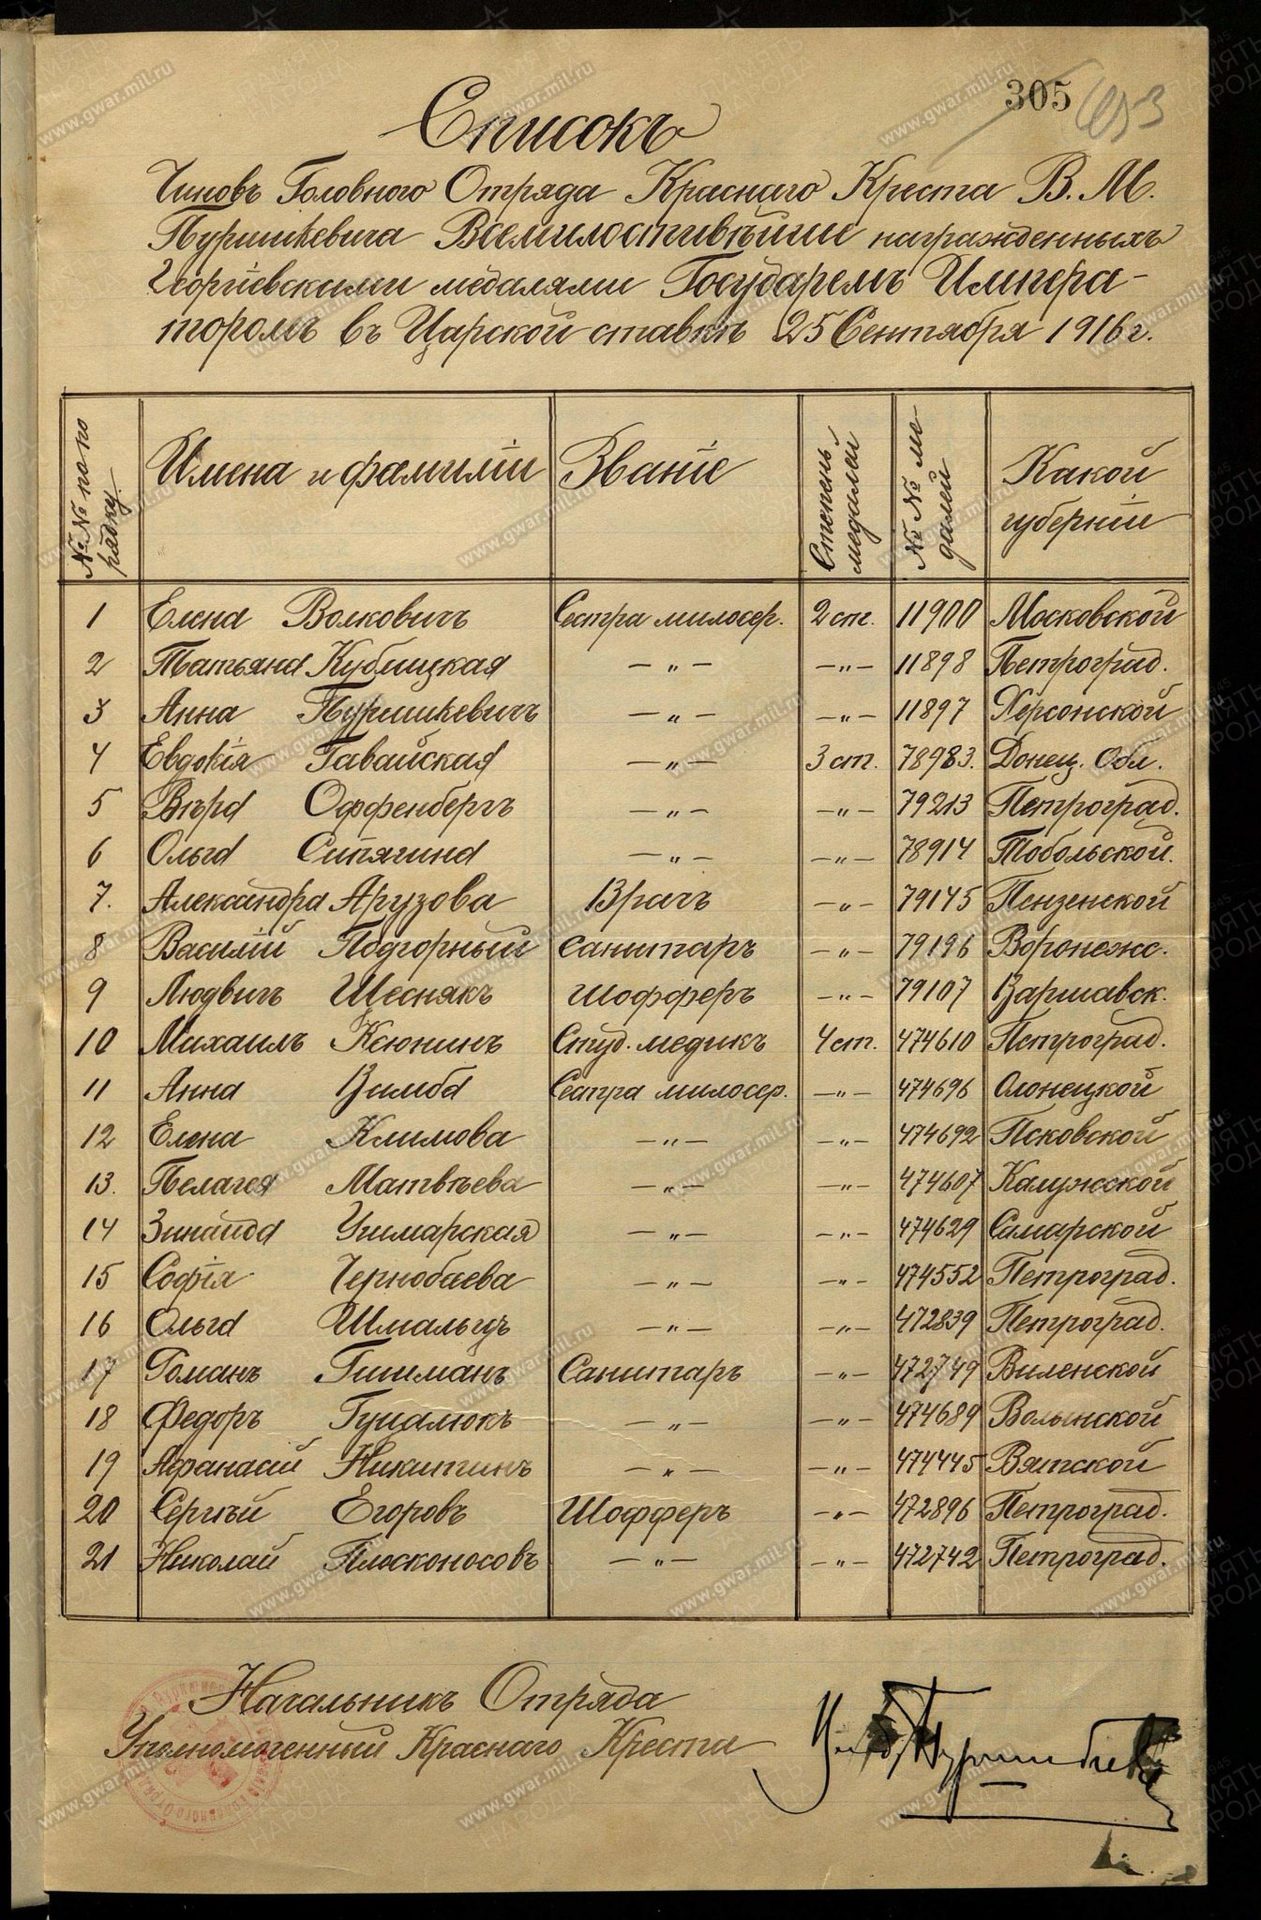 305
Списокъ
Чиновъ Головного Отряда Краснаго Креста В. М.
Пуришкевича Всемилостивѣйше награжденныхъ
Георгіевскими медалями Государемъ Импера-
торомъ въ Царской ставкѣ 25 Сентября 1916 г.
№№ по по рядку Имена и фамиліи Званіе Степень медалей №№ ме далей Какой губерніи
1 Елена Волковичъ Сестра милосер. 2 ст. 11900 Московской
2 Татьяна Кублицкая —"— —"— 11898 Петроград.
3 Анна Пуришкевичъ —"— —"— 11897 Херсонской
4 Евдокія Гавайская —"— 3 ст. 78983. Донец. Обл.
5 Вѣра Оффенбергъ —"— —"— 79213 Петроград.
6 Ольга Сипягина —"— —"— 78914 Тобольской.
7. Александра Арузова Врачъ —"— 79145 Пензенской
8 Василій Подгорный Санитаръ —"— 79196 Воронежс.
9 Людвигъ Щеснякъ Шофферъ —"— 79107 Варшавск.
10 Михаилъ Ксюнинъ Студ. медикъ 4 ст. 474610 Петроград.
11 Анна Вимба Сестра милосер. —"— 474696 Олонецкой
12 Елена Климова —"— —"— 474692 Псковской
13. Пелагея Матвѣева —"— —"— 474607 Калужской
14 Зинаида Учимарская —"— —"— 474629 Самарской
15 Софія Чернобаева —"— —"— 474552 Петроград.
16 Ольга Шмальцъ —"— —"— 472839 Петроград.
17 Романъ Гишманъ Санитаръ —"— 472749 Виленской
18 Федоръ Гуцалюкъ —"— —"— 474689 Волынской
19 Афанасій Никитинъ —"— —"— 474445 Вятской
20 Сергѣй Егоровъ Шофферъ —"— 472896 Петроград.
21 Николай Плосконосовъ —"— —"— 472742 Петроград.
Начальникъ Отряда
Уполномоченный Краснаго Креста
Пуришкевич